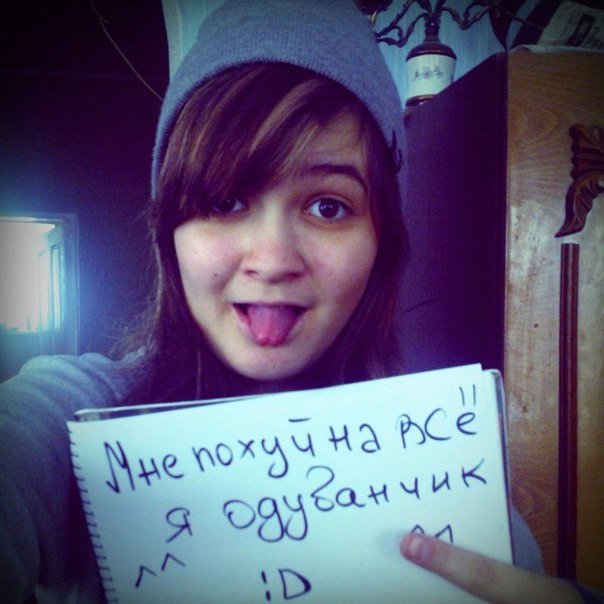 Мне похуй на всё
я одуванчик
^^ ^^
:D